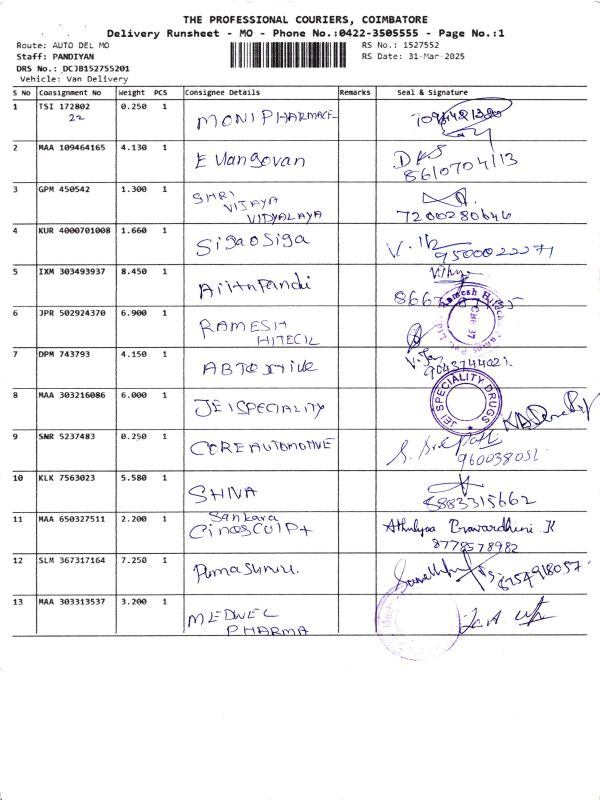 THE PROFESSIONAL COURIERS, COIMBATORE
Delivery Runsheet - MO - Phone No.:0422-3505555 - Page No.:1
Route: AUTO DEL MO
RS No.: 1527552
Staff: PANDIYAN
RS Date: 31-Mar-2025
DRS No.: DCJB152755201
Vehicle: Van Delivery
S No Consignment No Weight PCS Consignee Details Remarks Seal & Signature
1 TSI 172802 0.250 1 MONI PHARMACE
22
2 MAA 109464165 4.130 1 Elangovan DKS
8610704113
3 GPM 450542 1.300 1 SHRI
VIJAYA
VIDYALAYA
7200280646
4 KUR 4000701008 1.660 1 Sigaosiga
9500022271
5 IXM 303493937 8.450 1
6 JPR 502924370 6.900 1 RAMESH
HITECIL
Ramesh Hitech
7 DPM 743793 4.150 1
8 MAA 303216086 6.000 1 JEISPECIALITY JEI SPECIALITY DRUGS
9 SNR 5237483 0.250 1 COREAUTOMOTIVE
960038051
10 KLK 7563023 5.580 1 SHIVA
8883315662
11 MAA 650327511 2.200 1 Sankara
Athulyaa Bravardhini K
8778578982
12 SLM 367317164 7.250 1
13 MAA 303313537 3.200 1 MEDWEL
PHARMA